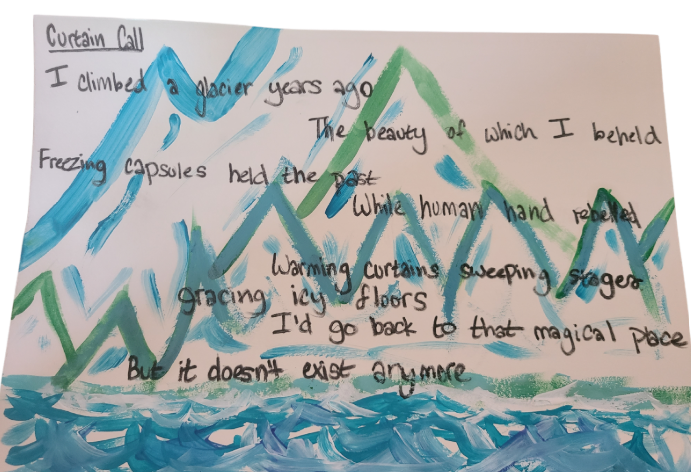 Curtain Call
I climbed a glacier years ago
The beauty of which I beheld
Freezing capsules held the past
While human hand rebelled
Warming curtains sweeping stages
gracing icy floors
I'd go back to that magical place
But it doesn't exist anymore